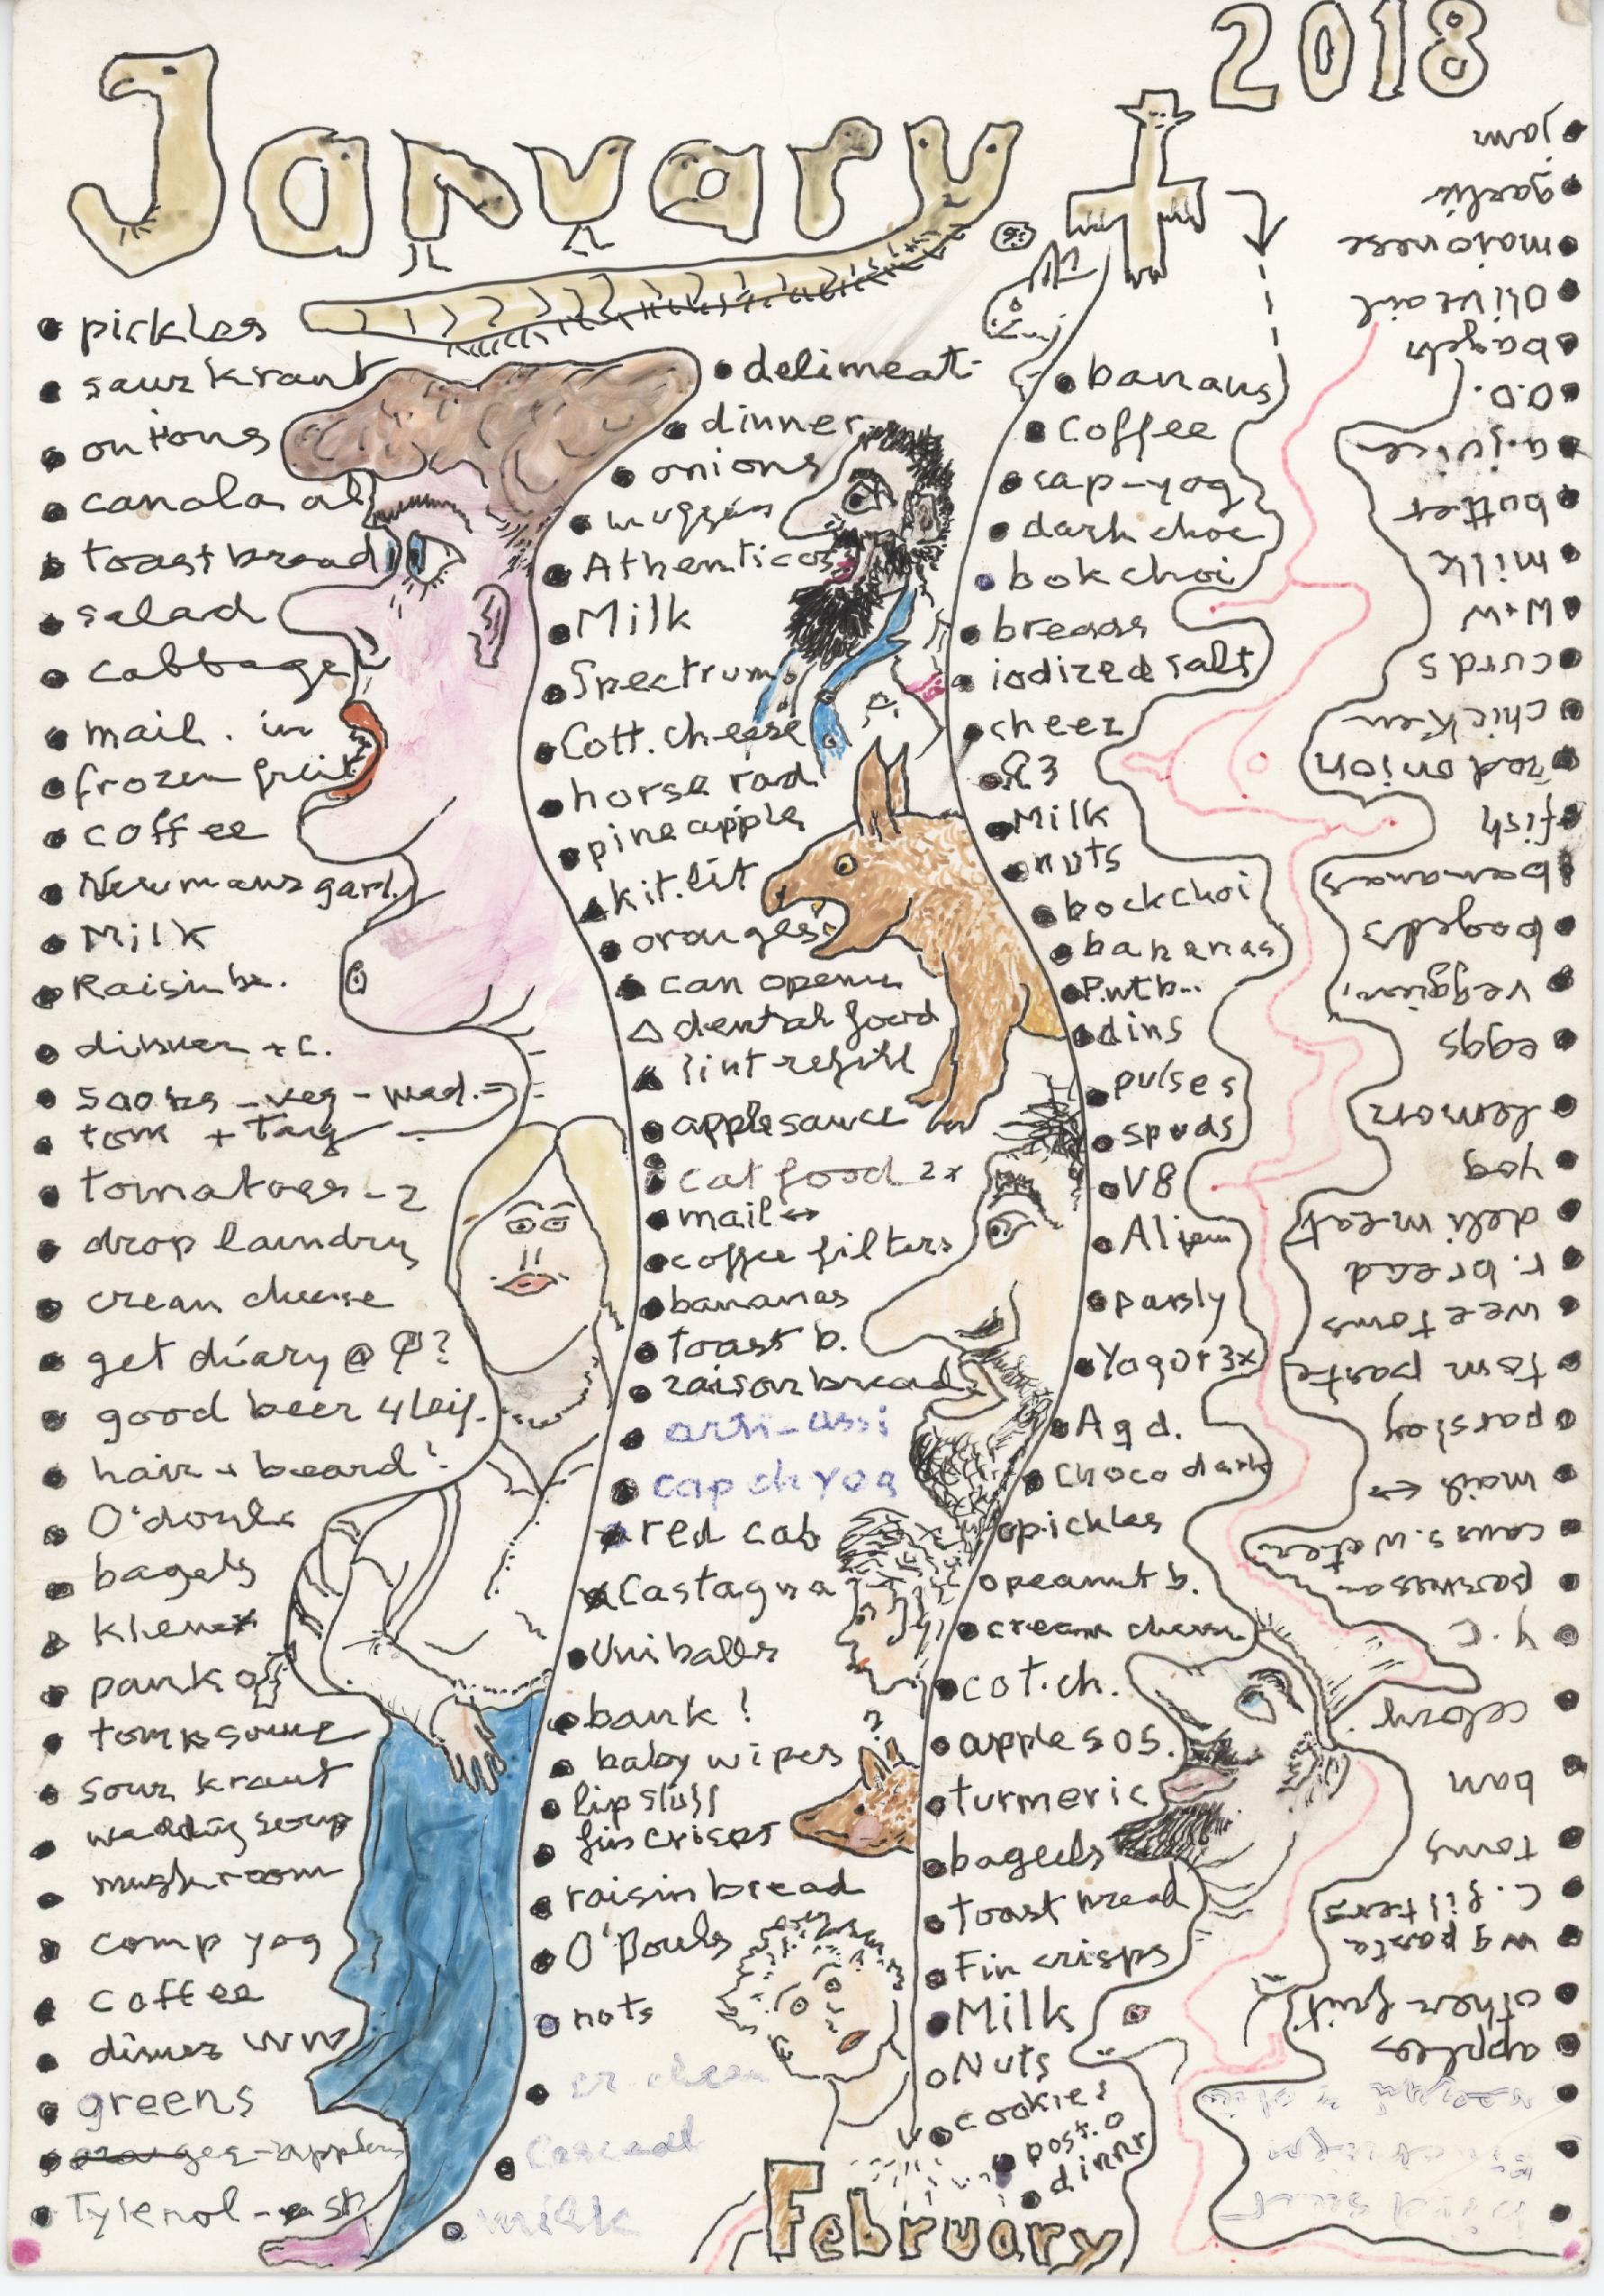 January + 2018
• pickles
• saurkraut
• onions
• canola oil
• toast bread
• salad
• cabbage
• mail. in
• frozen fruit
• coffee
• Newmans garl.
• Milk
• Raisin br.
• dinner + c.
tom + Tang
• tomatoes - 2
• drop laundry
• cream cheese
• get diary @ P?
• good beer 4 Leif.
• hair + beard!
• O'douls
• bagels
• klenex
• panko
• sour kraut
• wedding soup
• mushroom
• comp yog
• coffee
• greens
• oranges - apples
• Tylenol -
• delimeat
• dinner
• onions
• muggins
• Athenticos
• Milk
• Spectrum
• Cott. cheese
• horse rad
• pineapple
▲ kit. lit
• oranges
• can opener
△ dental food
▲ lint refill
• applesauce
• cat food 2x
• mail ↔
• coffee filters
• bananas
• toast b.
• raison bread
• cap ch yog
• red cab
• Castagna
• Uniballs
• bank !
• baby wipes
• lip stuff
• fin crisps
• raisin bread
• O'Douls
• nots
• Cascad
• milk
• bananas
• coffee
• cap-yog
• dark choc
• bok choi
• breads
• iodized salt
• cheez
• Milk
• nuts
• bockchoi
• bananas
• P.nt b..
• dins
• pulses
• spuds
• V8
• parsly
• Yogor 3x
• choco dark
• pickles
• peanut b.
• cream cheese
• cot. ch.
• apple sos.
• turmeric
• bagels
• toast bread
• Fin crisps
• Milk
• Nuts
• cookie!
• post. o
• dinnr
February
• jam
• garlic
• maionese
• oliv oil
• bagels
• O.O.
• a. juice
• butter
• milk
• W+W
• curds
• chicken
• red onion
• fish
• bananas
• bagels
• veggies
• eggs
• lemon
• yog
• deli meat
• r. bread
• wee toms
• tom paste
• parsley
• mail ↔
• parmesan
• y. c
• celery
• ban
• toms
• c. filters
• wg pasta
• other fruit
• apples